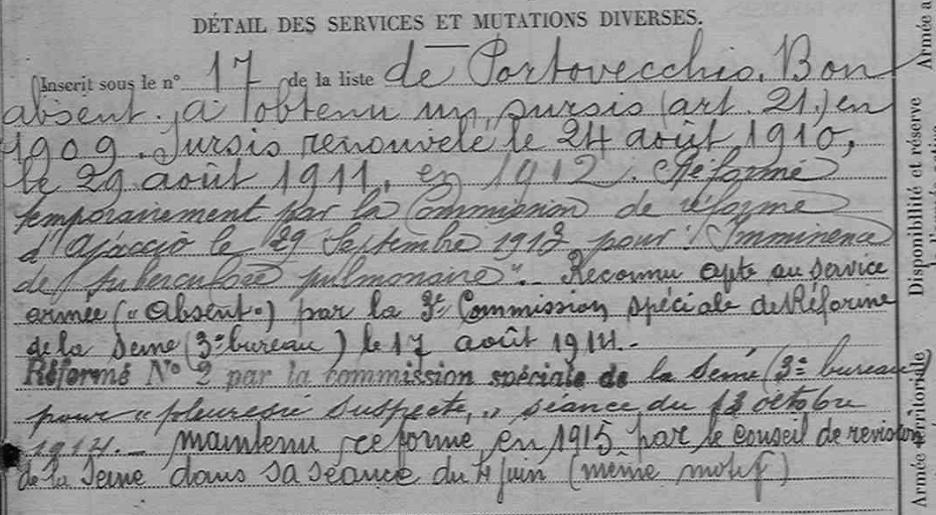 DÉTAIL DES SERVICES ET MUTATIONS DIVERSES.
Inscrit sous le n° 17 de la liste de Portovecchio. Bon
absent. a obtenu un sursis (art. 21.) en
1909. Sursis renouvelé le 24 août 1910,
le 29 août 1911, en 1912. Réformé
temporairement par la Commission de réforme
d'Ajaccio le 29 Septembre 1913 pour: "Imminence
de tuberculose pulmonaire". Reconnu apte au service
armée («Absent») par la 3e Commission spéciale de Réforme
de la Seine (3e bureau) le 17 août 1914.-
Réformé N° 2 par la commission spéciale de la Seine (3e bureau)
pour « pleuresie suspecte, » séance du 13 octobre
1914. - maintenu réformé en 1915 par le conseil de revision
de la Seine dans sa séance du 4 juin (même motif)
Armée a
Disponibilité et réserve
Armée territoriale